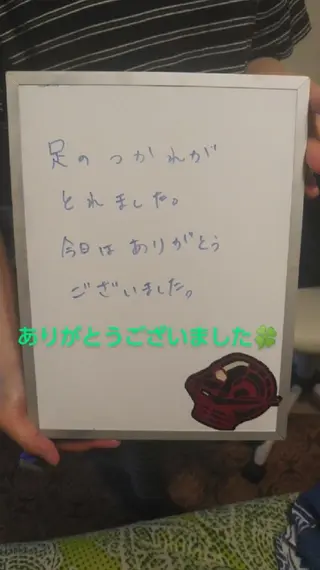 足のつかれが
とれました。
今日はありがとう
ございました。
ありがとうございました🍀